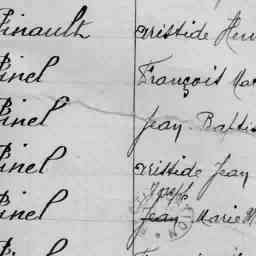 Pinault Aristide Hen
Pinel François Mar
Pinel Jean Baptis
Pinel Aristide Jean
Joseph
Pinel Jean Marie M